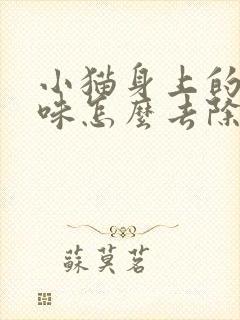 小猫身上的
咪怎麼去除
蘇莫茗